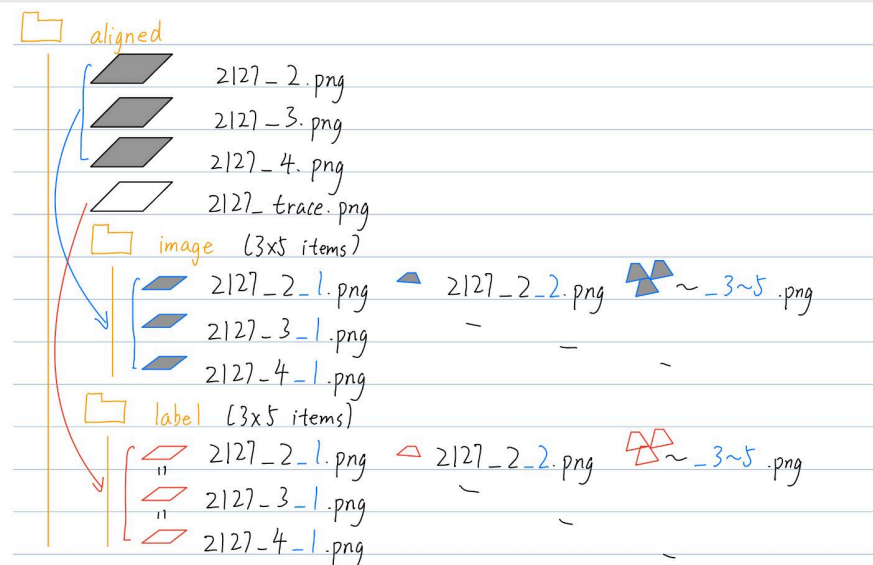 aligned
2127_2.png
2127_3.png
2127_4.png
2127_trace.png
image (3x5 items)
2127_2_1.png 2127_2_2.png ~_3~5.png
2127_3_1.png
2127_4_1.png
label (3x5 items)
2127_2_1.png 2127_2_2.png ~_3~5.png
2127_3_1.png
2127_4_1.png